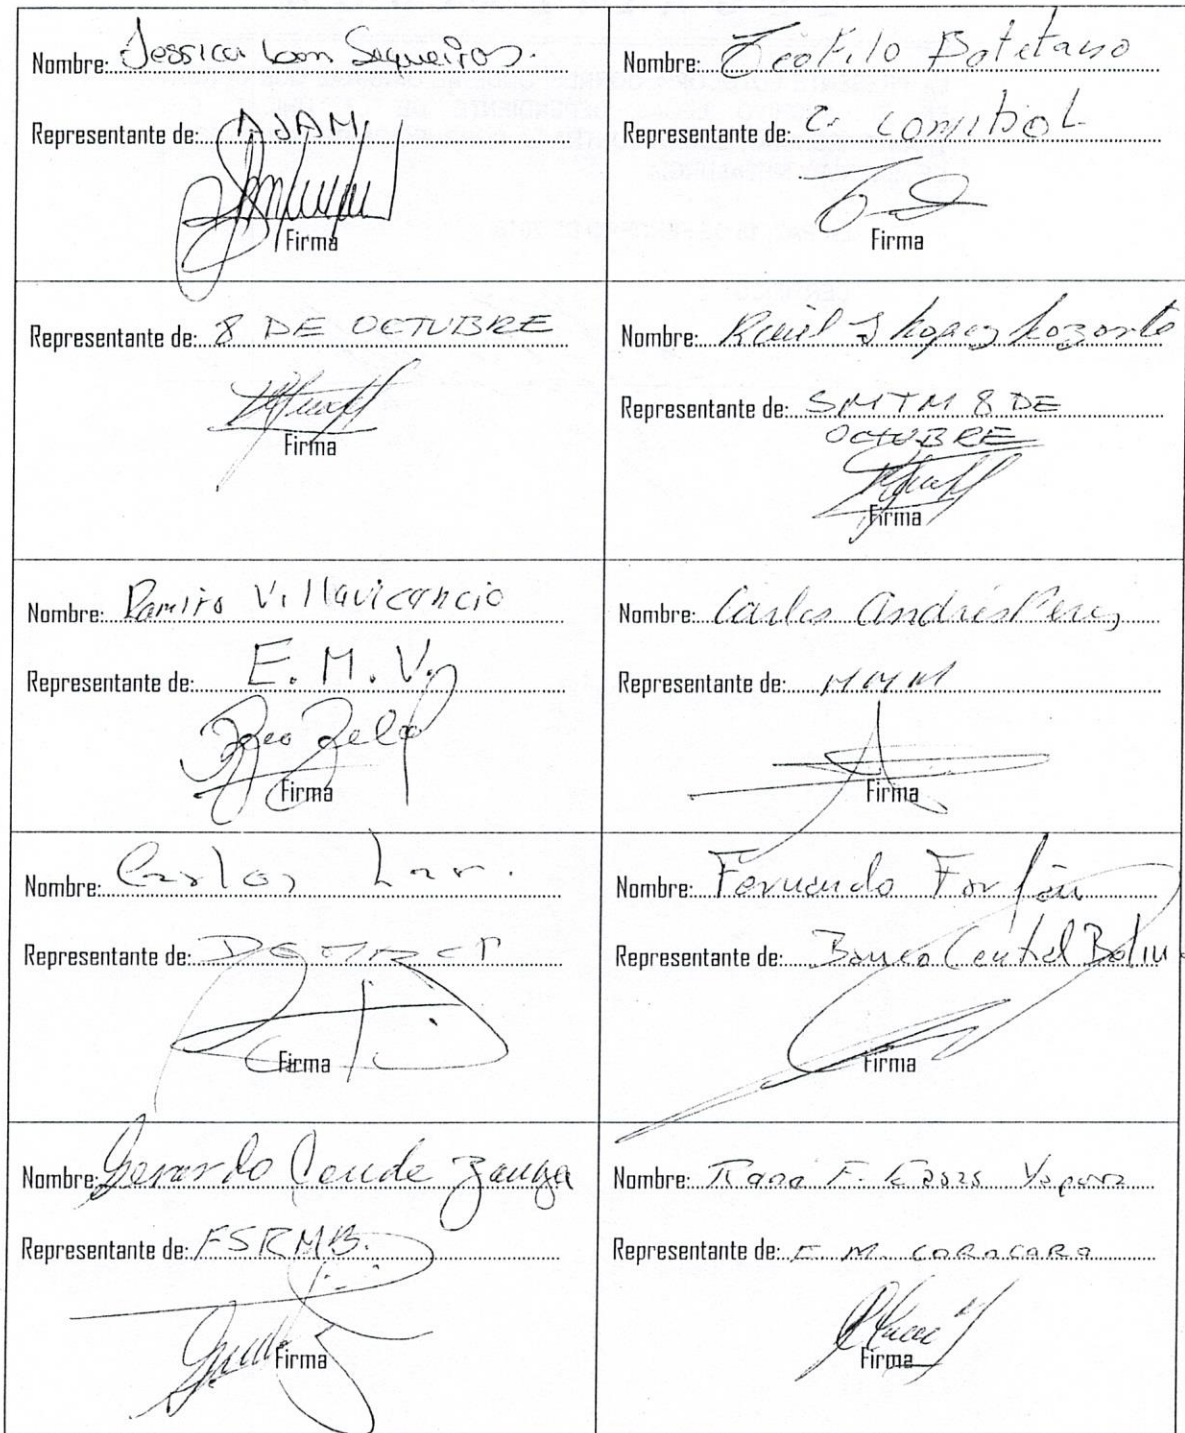 Nombre: Jessica Sequeiros.
Representante de: AJAM
Firma
Nombre: Teofilo Botetano
Representante de: C. comibol
Firma
Representante de: 8 DE OCTUBRE
Firma
Nombre: Raúl J
Representante de: SMTM 8 DE
OCTUBRE
Firma
Nombre: Ramiro Villavicencio
Representante de: E. M. V.
Firma
Nombre: Carlos Andrés Perez
Representante de: MMM
Firma
Nombre: Carlos
Representante de:
Firma
Nombre: Fernando
Representante de: Banco Central Boliv
Firma
Nombre: Gerardo Conde
Representante de: FSRMB.
Firma
Nombre: F.
Representante de: E M. CORACARA
Firma